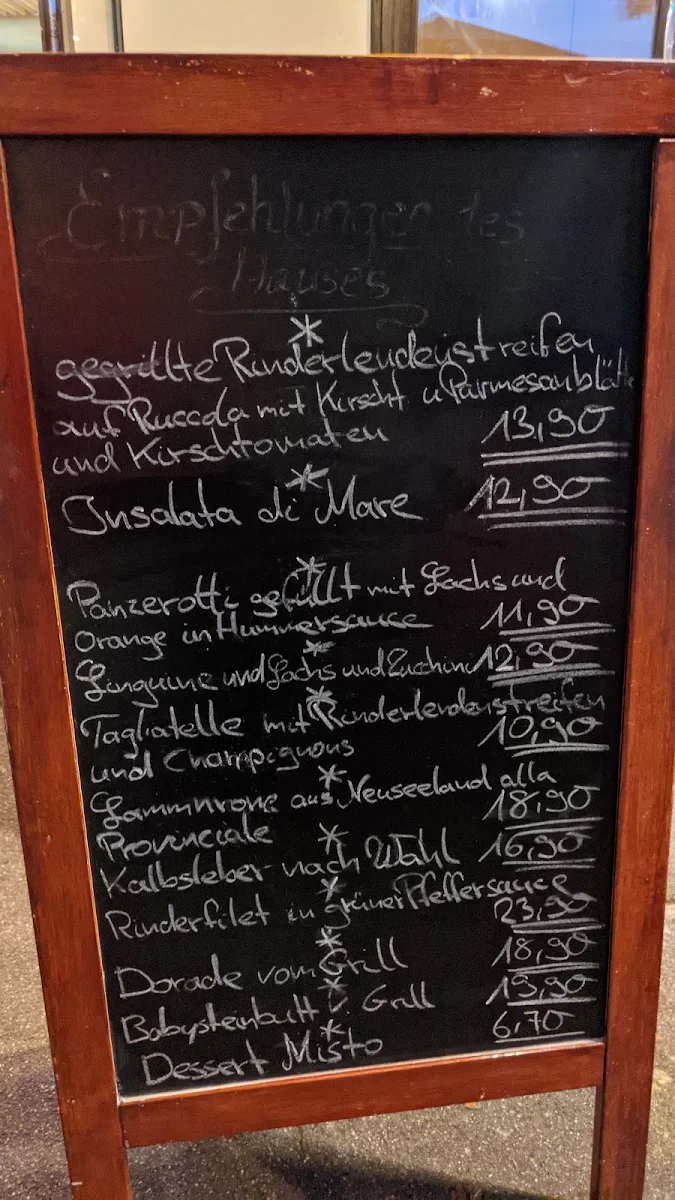 Empfehlungen des
Hauses
*
gegrillte Rinderlendenstreifen
auf Ruccola mit Kirscht u Parmesanblätt
und Kirschtomaten 13,90
*
Insalata di Mare 12,90
*
Panzerotti gefüllt mit Lachs und
Orange in Hummersauce 11,90
*
Linguine und Lachs und Zucchini 12,90
*
Tagliatelle mit Rinderlendenstreifen
und Champignons 10,90
*
Lammkrone aus Neuseeland alla
Provinciale 18,90
*
Kalbsleber nach Wahl 16,90
*
Rinderfilet in grüner Pfeffersauce
23,90
*
Dorade vom Grill 18,90
*
Babysteinbutt v. Grill 19,90
*
Dessert Misto 6,70